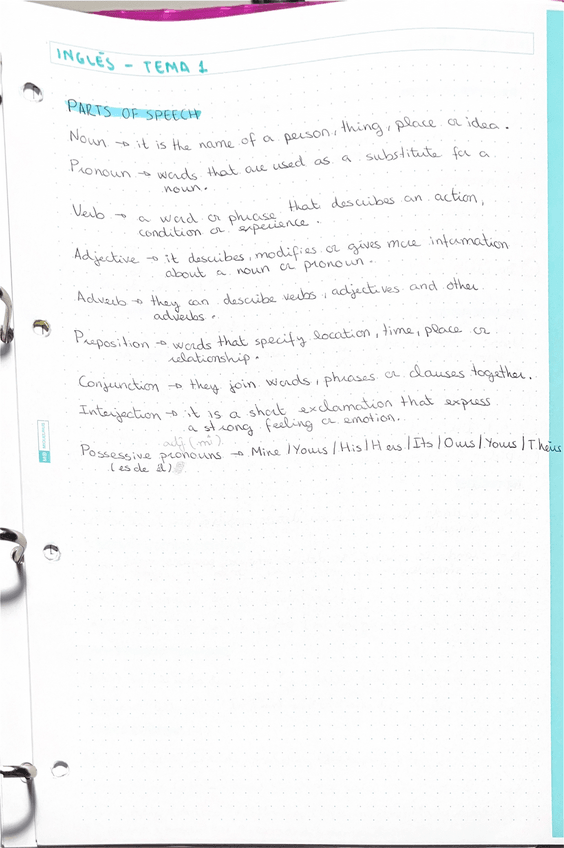 INGLÉS - TEMA 1
PARTS OF SPEECH
Noun → it is the name of a person, thing, place or idea.
Pronoun → words that are used as a substitute for a
noun.
Verb → a word or phrase that describes an action,
condition or experience.
Adjective → it describes, modifies or gives more information
about a noun or pronoun.
Adverb → they can describe verbs, adjectives and other
adverbs.
Preposition → words that specify location, time, place or
relationship.
Conjunction → they join words, phrases or clauses together.
Interjection → it is a short exclamation that express
a strong feeling or emotion.
adj (mi)
Possessive pronouns → Mine / Yours / His / Hers / Its / Ours / Yours / Theirs
(es de él)